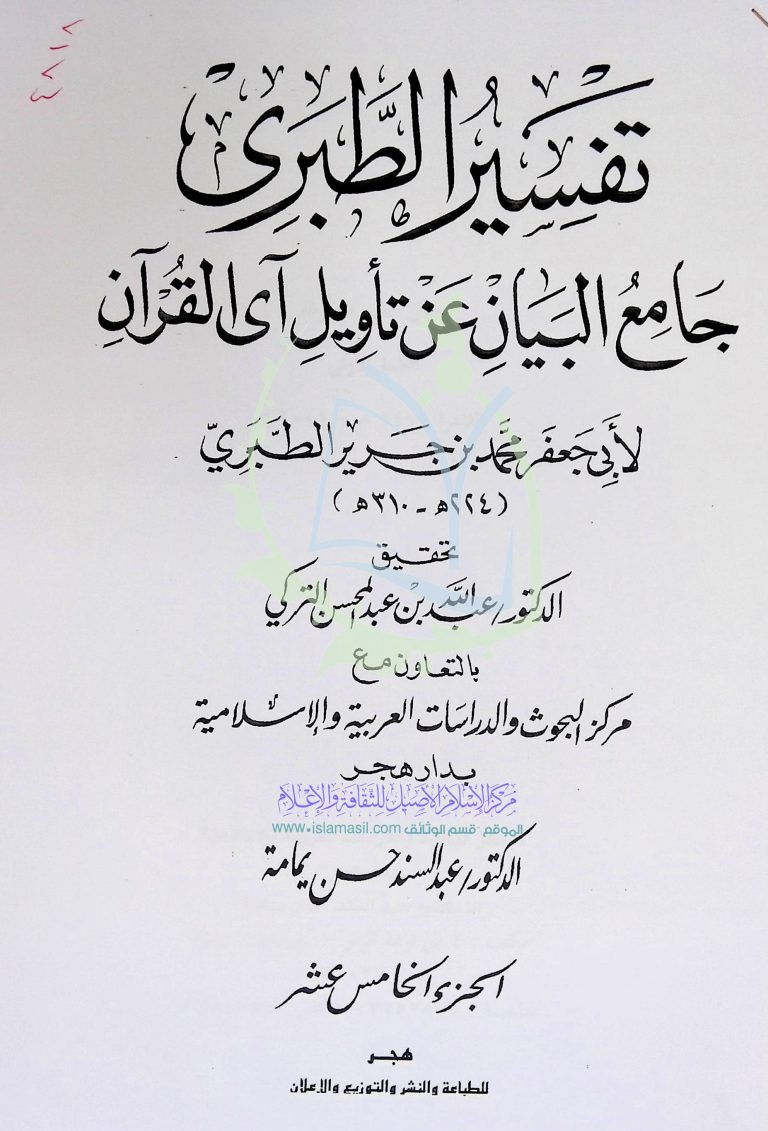 تَفْسِيرُ الطَّبَرِي
جَامِعُ البَيَانِ عَنْ تَأوِيلِ آىِ القُرْآنِ
لأَبِي جَعفَر مُحَمَّد بن جَرِير الطَّبَرِيّ
(٢٢٤ هـ - ٣١٠ هـ)
تحقيق
الدكتور/ عبد الله بن عبد المحسن التركي
بالتعاون مع
مركز البحوث والدراسات العربية والإسلامية
بدار هجر
مركز الإسلام الأصيل للثقافة والإعلام
الموقع - قسم الوثائق www.islamasil.com
الدكتور/ عبد السند حسن يمامة
الجزء الخامس عشر
هجر
للطباعة والنشر والتوزيع والإعلان